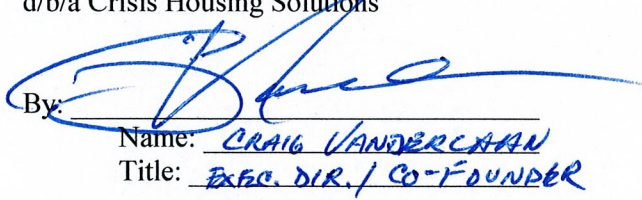 d/b/a Crisis Housing Solutions
By:
Name: CRAIG VANDERLAAN
Title: EXEC. DIR. / CO-FOUNDER